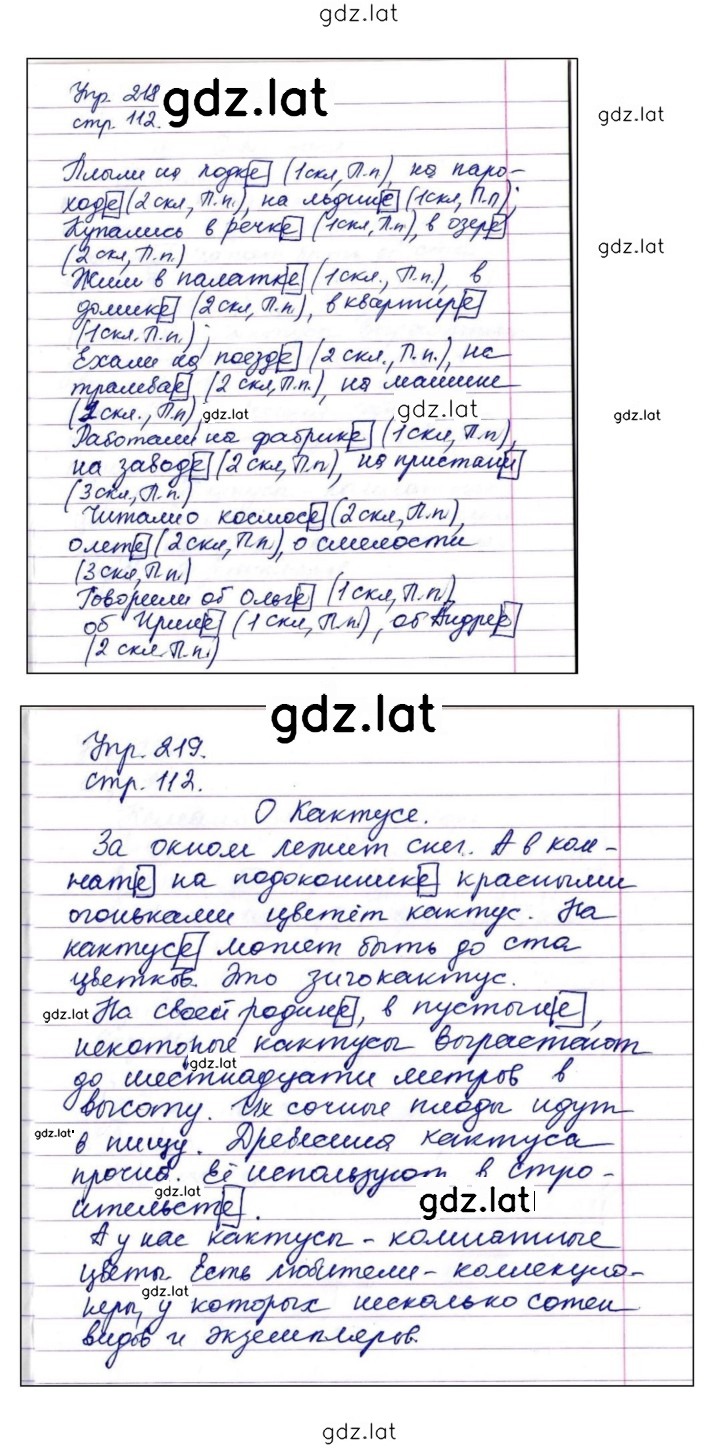 gdz.lat
Упр. 218
стр. 112.
gdz.lat
gdz.lat
Плыли на лодке (1скл, П.п), на паро-
ходе (2 скл, П.п.), на льдине (1скл, П.п);
Купались в речке (1скл, П.п), в озере
(2 скл, П.п)
gdz.lat
Жили в палатке (1скл., П.п.), в
домике (2 скл, П.п.), в квартире
(1скл. П.п.);
Ехали на поезде (2 скл., П.п.), на
трамвае (2 скл, П.п.), на машине
(1скл., П.п),
gdz.lat
gdz.lat
gdz.lat
Работали на фабрике (1скл, П.п),
на заводе (2 скл, П.п), на пристани
(3 скл, П.п.)
Читали о космосе (2 скл, П.п.),
о лете (2 скл, П.п), о смелости
(3 скл, П.п.)
Говорили об Ольге (1скл, П.п),
об Ирине (1 скл, П.п.), об Андрее
(2 скл. П.п.)
gdz.lat
Упр. 219.
стр. 112.
О Кактусе.
За окном летит снег. А в ком-
нате на подоконнике красными
огоньками цветёт кактус. На
кактусе может быть до ста
цветков. Это зигокактус.
gdz.lat
На своей родине, в пустыне,
некоторые кактусы вырастают
gdz.lat
до шестнадцати метров в
высоту. Их сочные плоды идут
gdz.lat
в пищу. Древесина кактуса
прочна. Её используют в стро-
gdz.lat
ительстве.
gdz.lat
А у нас кактусы - комнатные
цветы. Есть любители - коллекцио-
gdz.lat
неры, у которых несколько сотен
видов и экземпляров.
gdz.lat